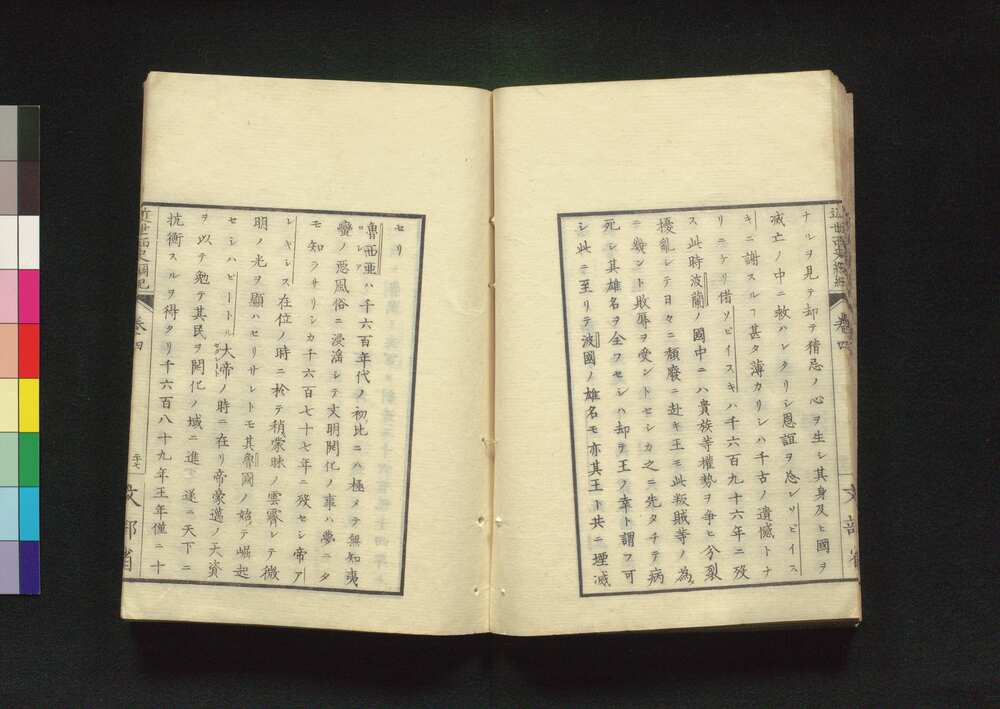 ナルヲ見テ却テ猜忌ノ心ヲ生シ其身及ヒ國ヲ
滅亡ノ中ニ救ハレタリシ恩誼ヲ忘レソビイス
キニ謝スルヿ甚タ薄カリシハ千古ノ遺憾トナ
リニケリ偖ソビイスキハ千六百九十六年ニ歿
ス此時波蘭ノ國中ニハ貴族等權勢ヲ爭ヒ分裂
擾亂シテ日々ニ頽廢ニ赴キ王モ此叛賊等ノ為
ニ幾ント敗辱ヲ受ントセシカ之ニ先タチテ病
死シ其雄名ヲ全フセシハ却テ王ノ幸ト謂フ可
シ此ニ至リテ波國ノ雄名モ亦其王ト共ニ堙滅
近世西史綱紀
卷四
文部省
セリ
魯西亜ハ千六百年代ノ初比ニハ極メテ無知夷
ロシア
蠻ノ惡風俗ニ浸滛シテ文明開化ノ事ハ夢ニタ
モ知ラサリシカ千六百七十七年ニ歿セシ帝ア
レキシス在位ノ時ニ於テ稍蒙昧ノ雲霽レテ微
明ノ光ヲ顯ハセリサレトモ其魯國ノ始テ崛起
セシハピートル大帝ノ時ニ在リ帝豪邁ノ天資
ヲ以テ勉テ其民ヲ開化ノ域ニ進メ遂ニ天下ニ
抗衡スルヲ得タリ千六百八十九年王年僅ニ十
近世西史綱紀
卷四
文部省